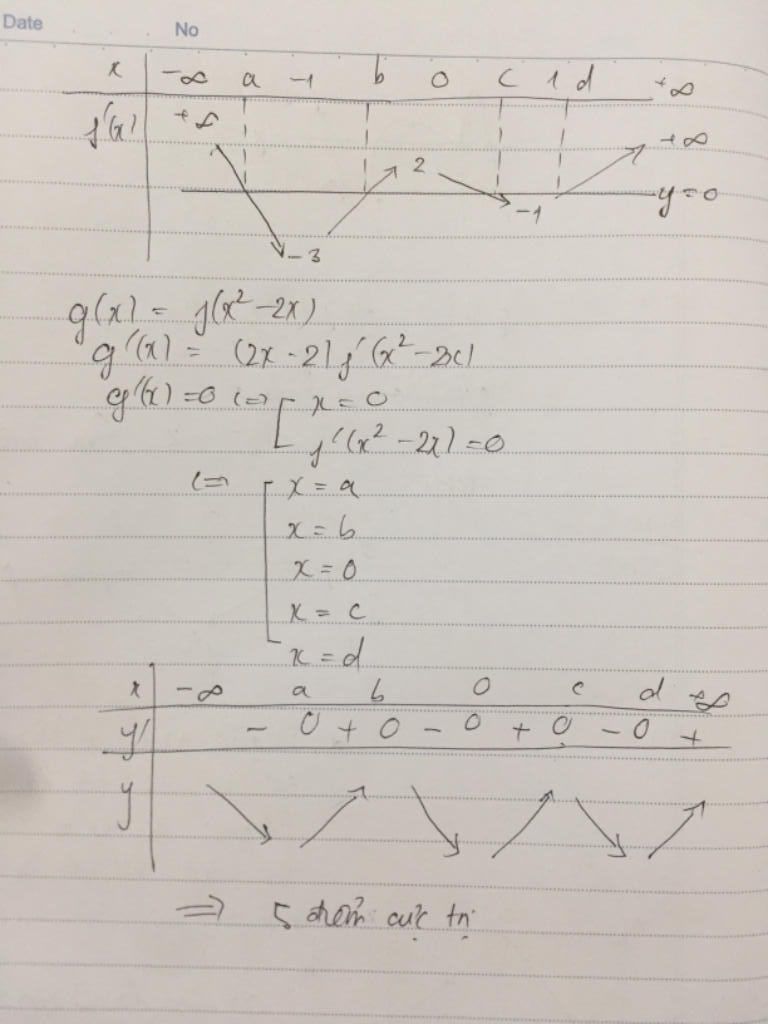 Date No
x -∞ a -1 b 0 c 1 d +∞
f'(x) +∞ -3 2 -1 +∞ y=0
g(x) = f(x² -2x)
g'(x) = (2x - 2) f'(x² - 2x)
g'(x) = 0 <=> [ x = 0
f'(x² -2x) = 0
<=> [ x = a
x = b
x = 0
x = c
x = d
x -∞ a b 0 c d +∞
y' - 0 + 0 - 0 + 0 - 0 +
y
=> 5 điểm cực trị